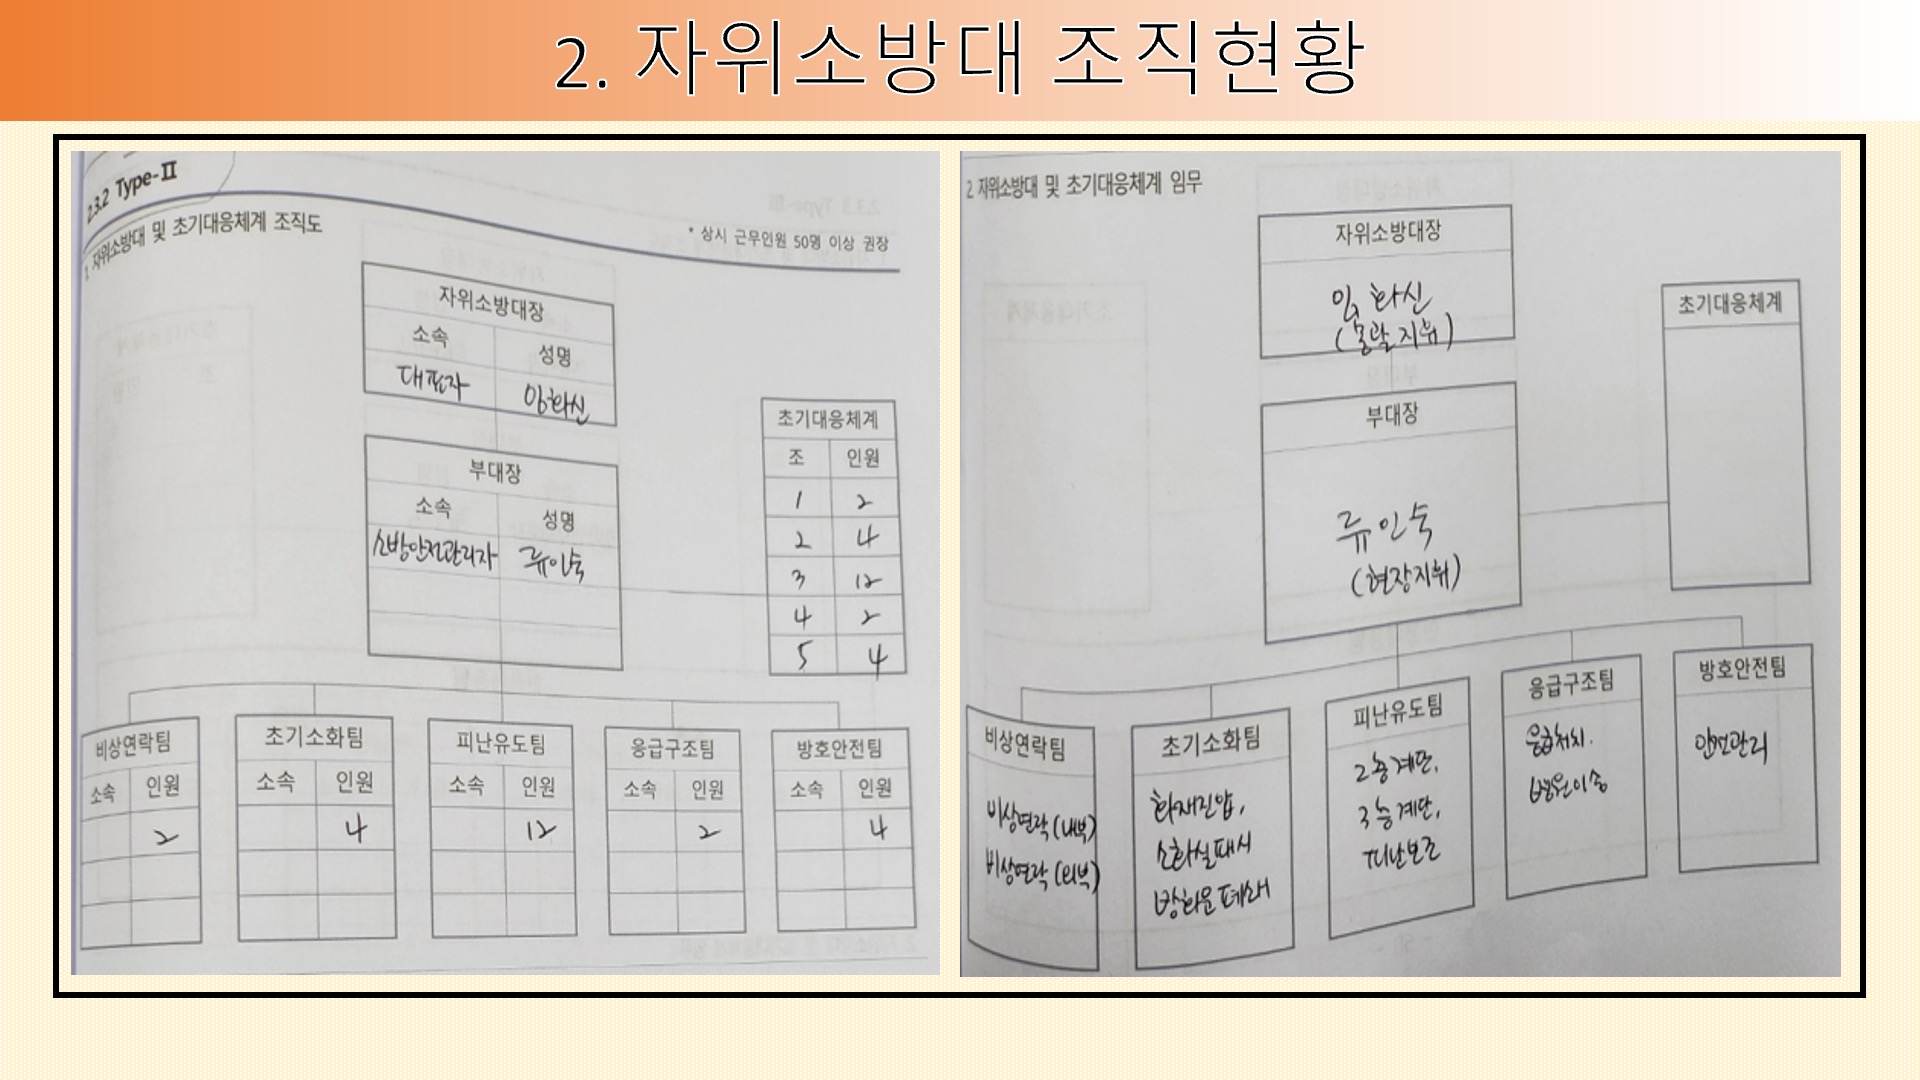 2. 자위소방대 조직현황
2.3.2 Type-Ⅱ
1 자위소방대 및 초기대응체계 조직도
* 상시 근무인원 50명 이상 권장
자위소방대장
소속 성명
대표자 임화신
부대장
소속 성명
소방안전관리자 류인숙
초기대응체계
조 인원
1 2
2 4
3 12
4 2
5 4
비상연락팀
소속 인원
2
초기소화팀
소속 인원
4
피난유도팀
소속 인원
12
응급구조팀
소속 인원
2
방호안전팀
소속 인원
4
2 자위소방대 및 초기대응체계 임무
자위소방대장
임화신
(총괄지휘)
부대장
류인숙
(현장지휘)
초기대응체계
비상연락팀
비상연락(내부)
비상연락(외부)
초기소화팀
화재진압,
소화실패시
방화문폐쇄
피난유도팀
2층계단,
3층계단,
피난보조
응급구조팀
응급처치.
병원이송
방호안전팀
안전관리